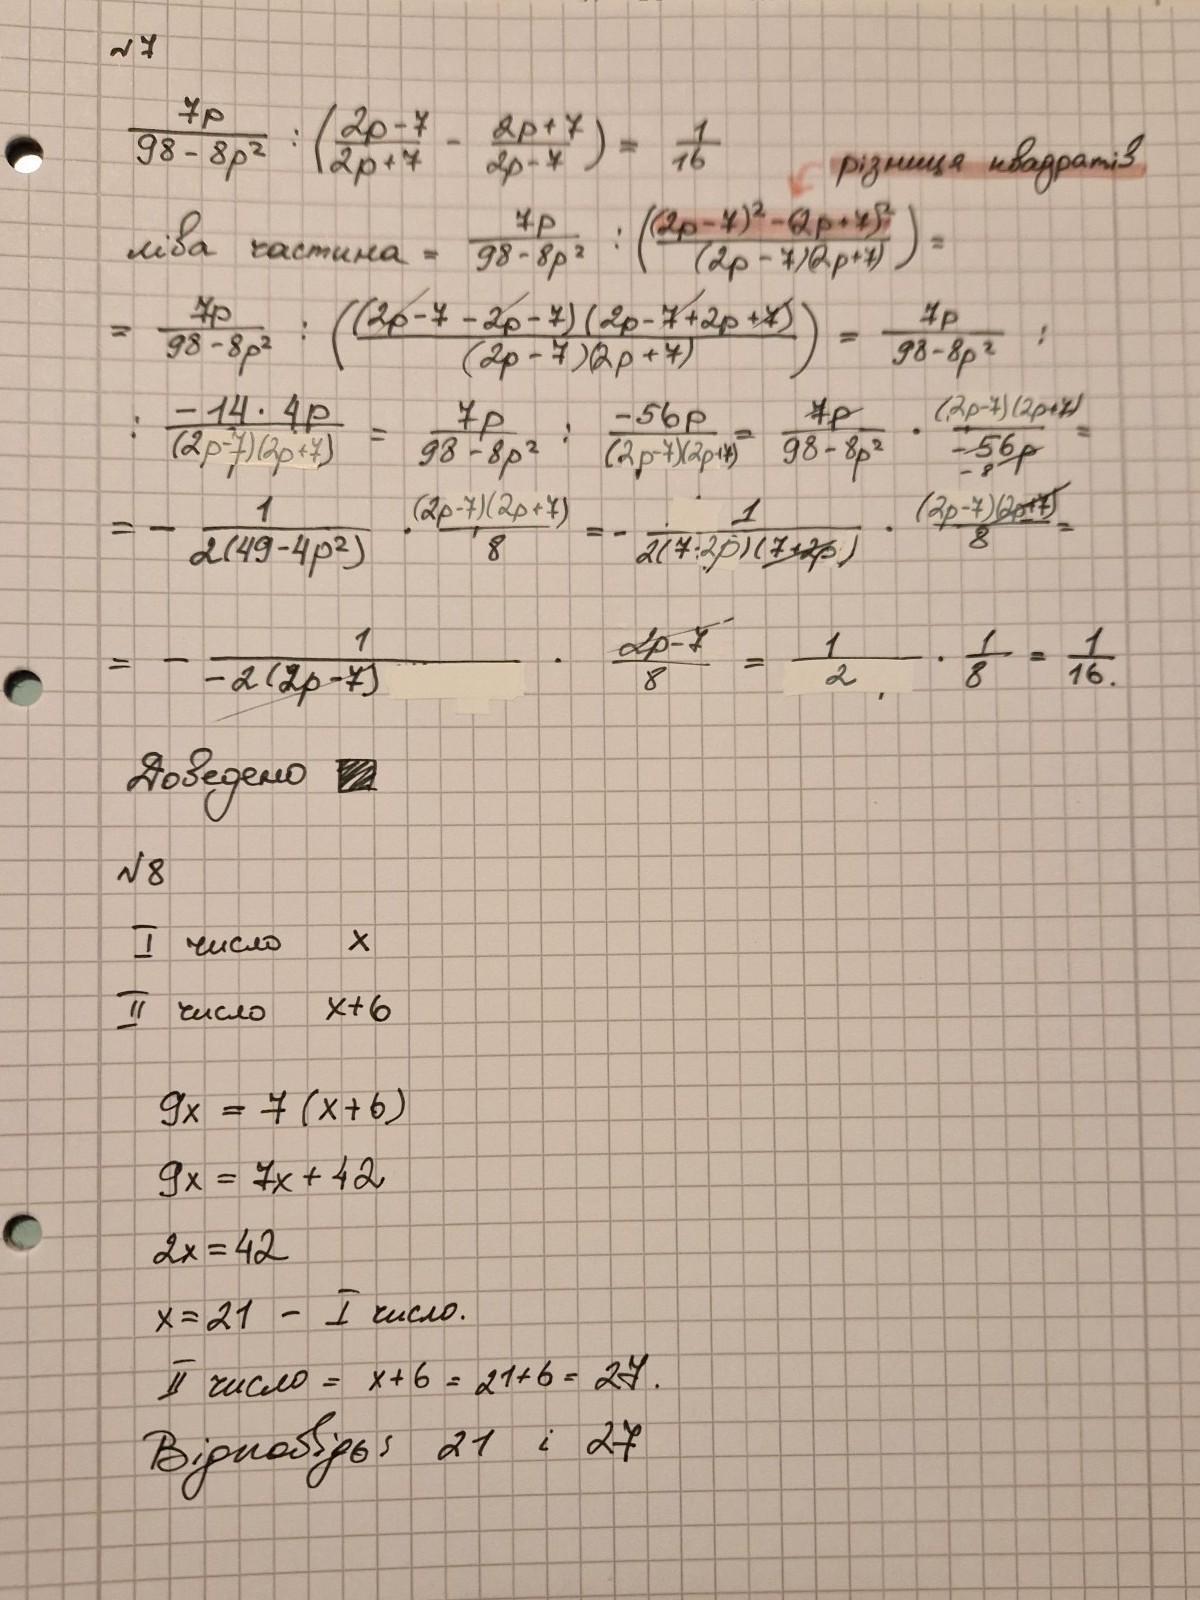 №7
7p/(98-8p²) : ((2p-7)/(2p+7) - (2p+7)/(2p-7)) = 1/16
різниця квадратів
ліва частина = 7p/(98-8p²) : (((2p-7)²-(2p+7)²)/((2p-7)(2p+7))) =
= 7p/(98-8p²) : (((2p-7-2p-7)(2p-7+2p+7))/((2p-7)(2p+7))) = 7p/(98-8p²) :
: (-14·4p)/((2p-7)(2p+7)) = 7p/(98-8p²) : (-56p)/((2p-7)(2p+7)) = 7p/(98-8p²) · ((2p-7)(2p+7))/(-56p) =
-8
= - 1/(2(49-4p²)) · ((2p-7)(2p+7))/8 = - 1/(2(7-2p)(7+2p)) · ((2p-7)(2p+7))/8 =
= - 1/(-2(2p-7)) · (2p-7)/8 = 1/2 · 1/8 = 1/16.
Доведено
№8
I число x
II число x+6
9x = 7(x+6)
9x = 7x+42
2x=42
x=21 - I число.
II число = x+6 = 21+6 = 27.
Відповідь: 21 і 27